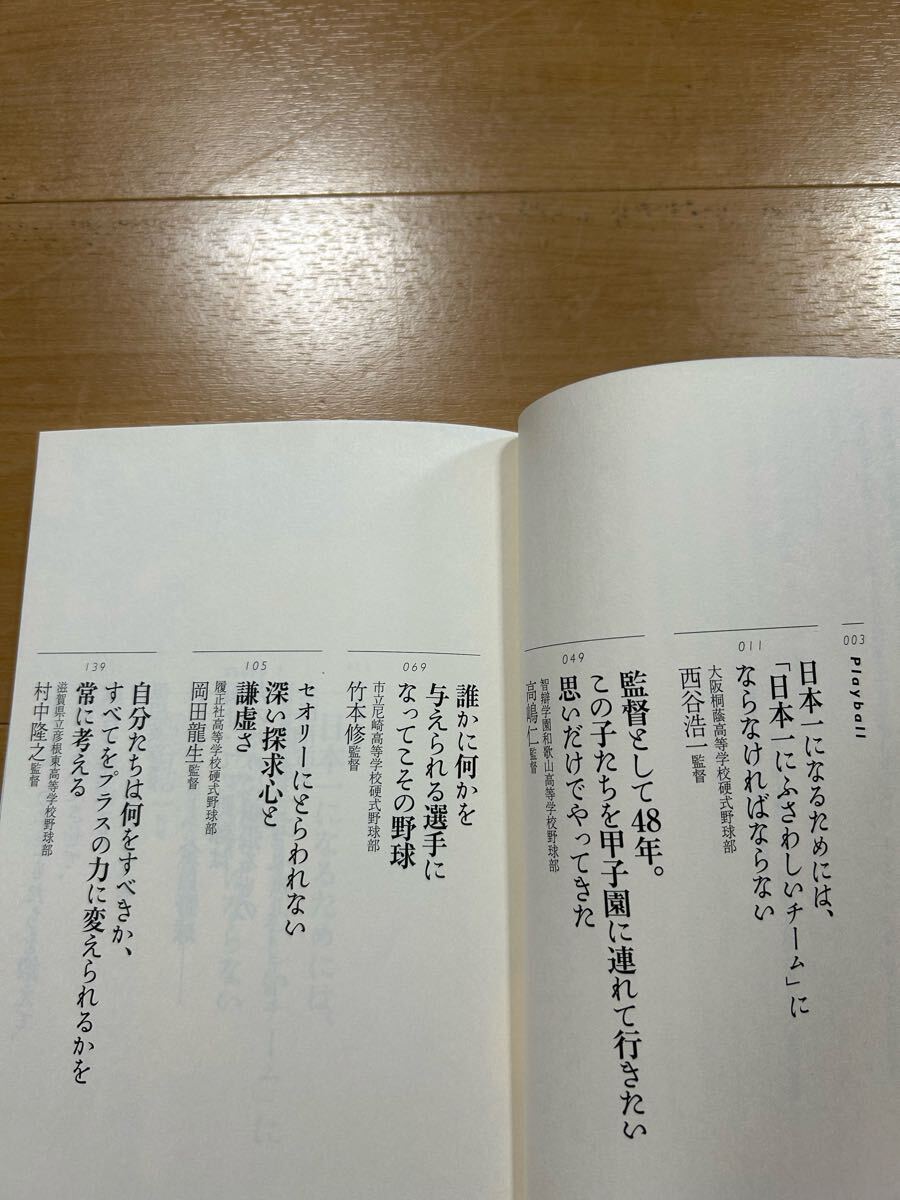 003
Playball
011
日本一になるためには、
「日本一にふさわしいチーム」に
ならなければならない
大阪桐蔭高等学校硬式野球部
西谷浩一監督
049
監督として48年。
この子たちを甲子園に連れて行きたい
思いだけでやってきた
智辯学園和歌山高等学校野球部
高嶋仁監督
069
誰かに何かを
与えられる選手に
なってこその野球
市立尼崎高等学校硬式野球部
竹本修監督
105
セオリーにとらわれない
深い探求心と
謙虚さ
履正社高等学校硬式野球部
岡田龍生監督
139
自分たちは何をすべきか、
すべてをプラスの力に変えられるかを
常に考える
滋賀県立彦根東高等学校野球部
村中隆之監督